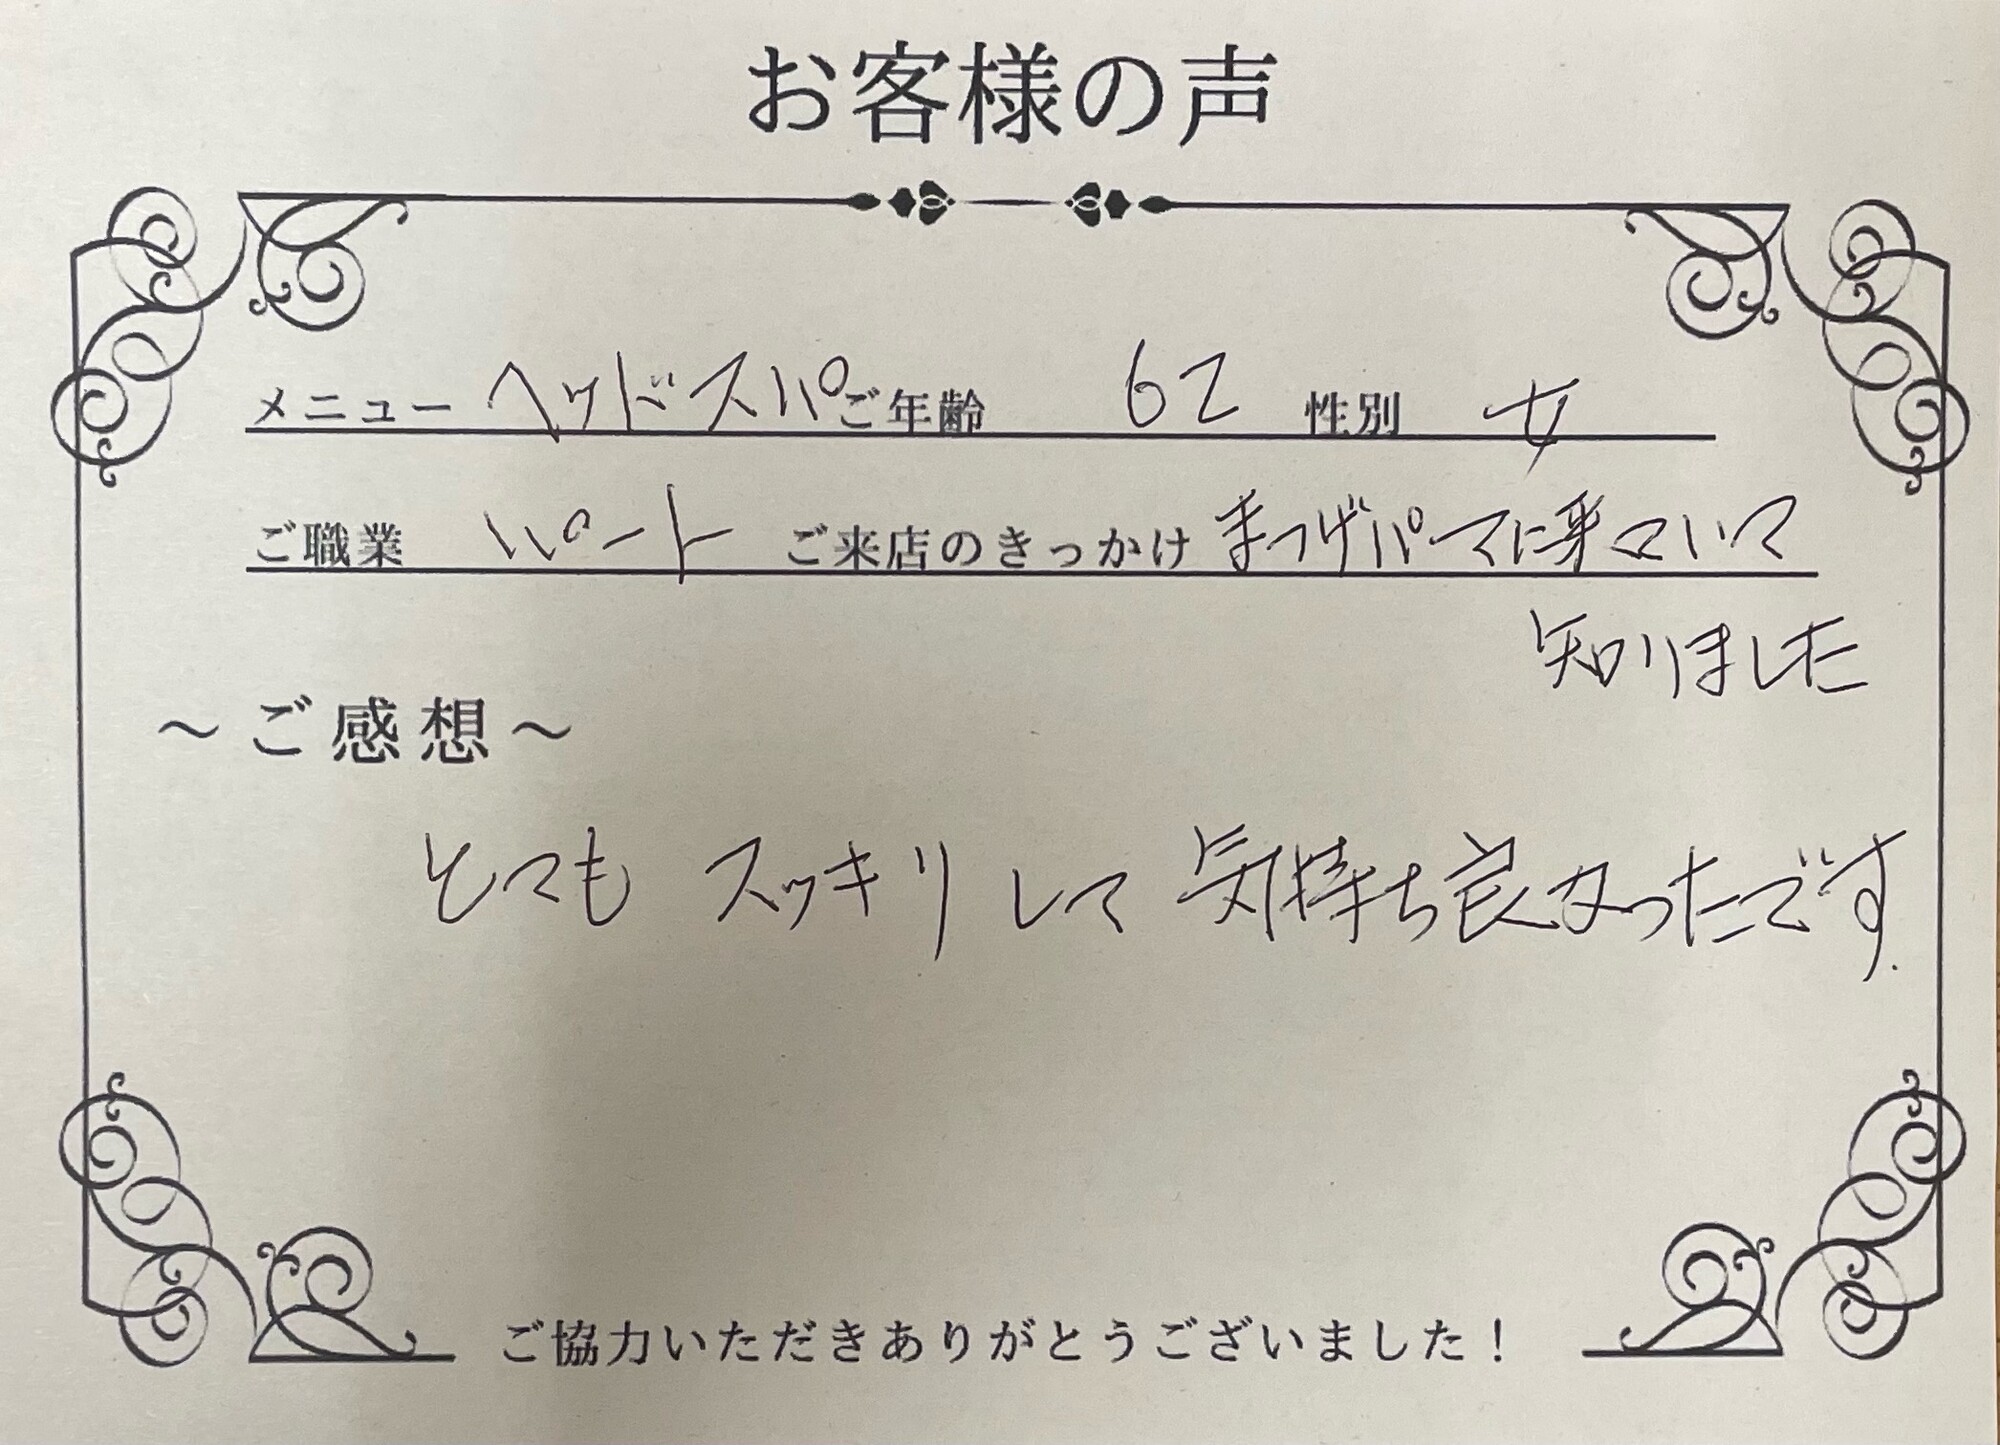 お客様の声
メニュー ヘッドスパ ご年齢 62 性別 女
ご職業 パート ご来店のきっかけ まつげパーマに来ていて
知りました
～ご感想～
とても スッキリ して 気持ち良かったです.
ご協力いただきありがとうございました！